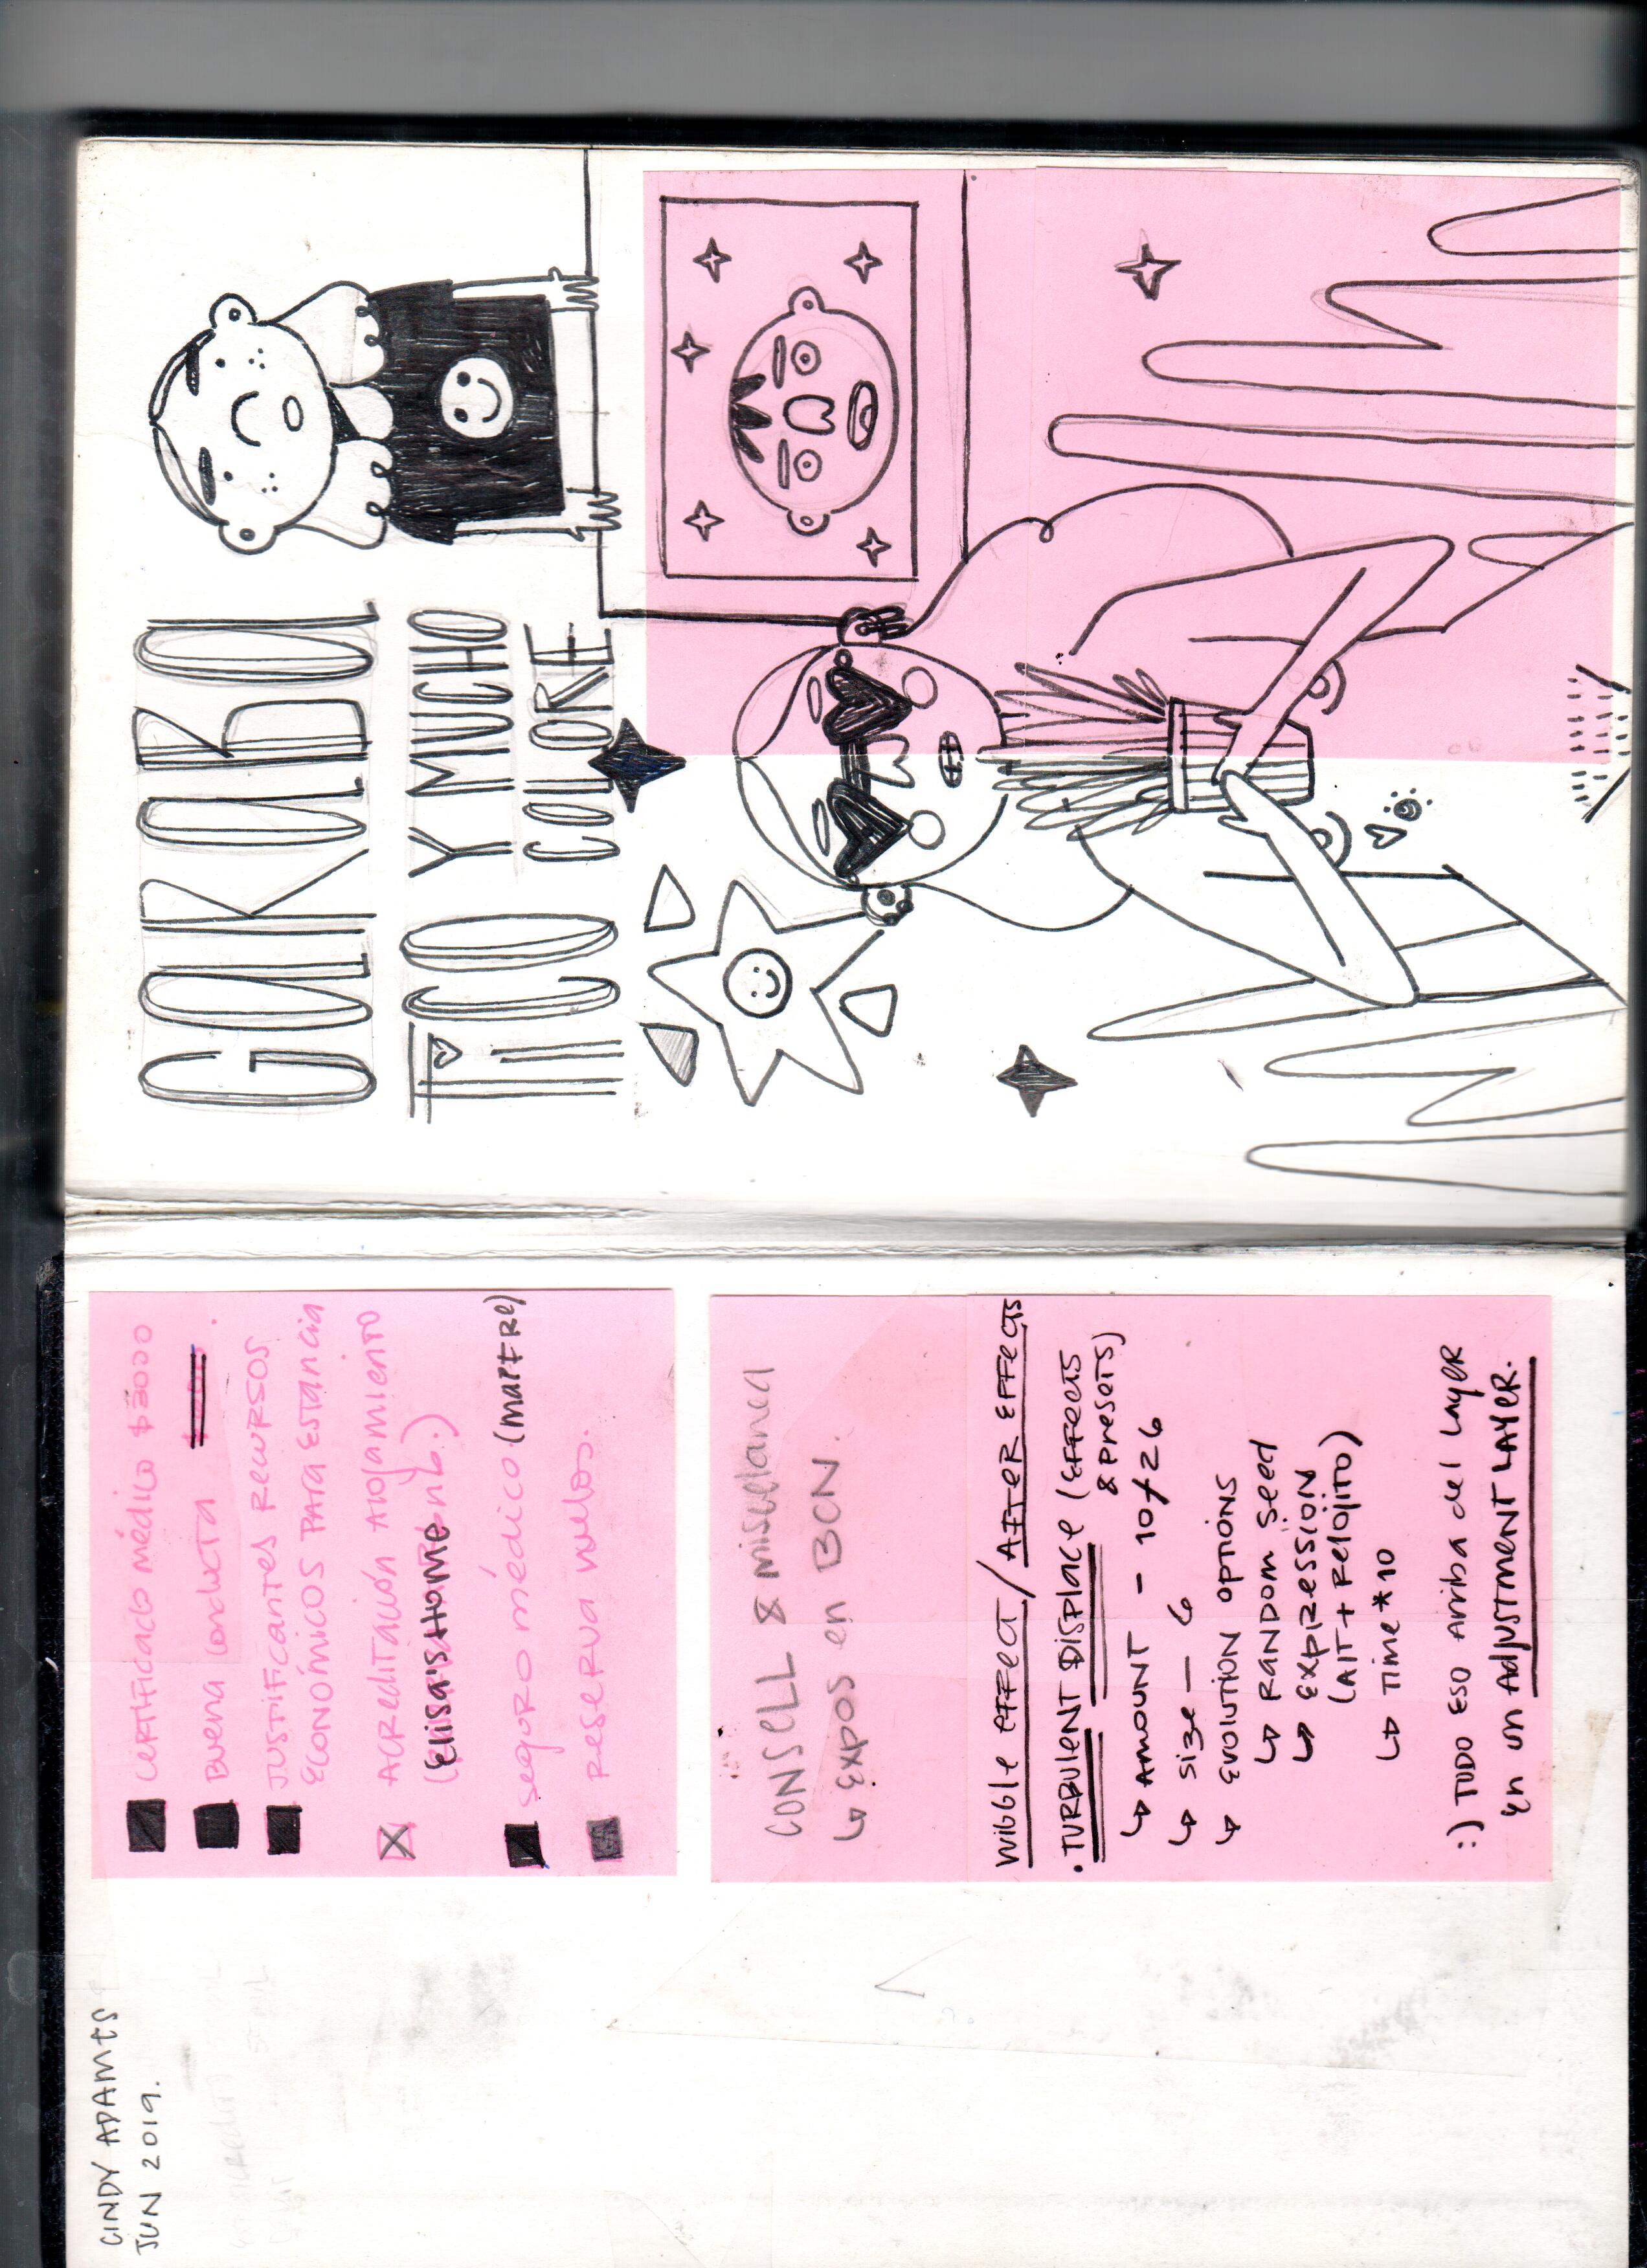 CINDY ADAMES
JUN 2019.
CERTIFICADO MÉDICO $3000
BUENA CONDUCTA
JUSTIFICANTES RECURSOS
ECONÓMICOS PARA ESTANCIA
ACREDITACIÓN ALOJAMIENTO
ELISA'S HOME
SEGURO MÉDICO (MAPFRE)
RESERVA VUELOS.
CONSELL & MISCELANEA
↳ EXPOS EN BCN.
WIGGLE EFFECT / AFTER EFFECTS
. TURBULENT DISPLACE (EFFECTS
& PRESETS)
↳ AMOUNT - 10/26
↳ SIZE — 6
↳ EVOLUTION OPTIONS
↳ RANDOM SEED
↳ EXPRESSION
(ALT + RELOJITO)
↳ TIME * 10
:) TODO ESO ARRIBA DEL LAYER
EN UN ADJUSTMENT LAYER.
GARABA
TICO Y MUCHO
COLORE